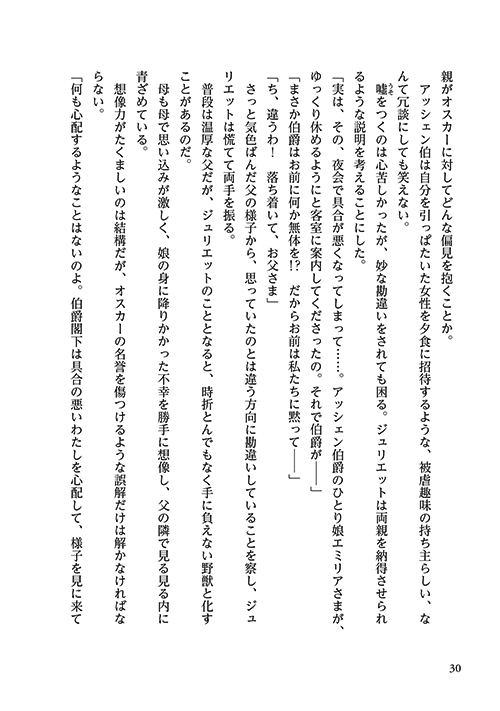 親がオスカーに対してどんな偏見を抱くことか。
　アッシェン伯は自分を引っぱたいた女性を夕食に招待するような、被虐趣味の持ち主らしい、な
んて冗談にしても笑えない。
　嘘をつくのは心苦しかったが、妙な勘違いをされても困る。ジュリエットは両親を納得させられ
るような説明を考えることにした。
「実は、その、夜会で具合が悪くなってしまって……。アッシェン伯爵のひとり娘エミリアさまが、
ゆっくり休めるようにと客室に案内してくださったの。それで伯爵が――」
「まさか伯爵はお前に何か無体を!?　だからお前は私たちに黙って――」
「ち、違うわ！　落ち着いて、お父さま」
　さっと気色ばんだ父の様子から、思っていたのとは違う方向に勘違いしていることを察し、ジュ
リエットは慌てて両手を振る。
　普段は温厚な父だが、ジュリエットのこととなると、時折とんでもなく手に負えない野獣と化す
ことがあるのだ。
　母も母で思い込みが激しく、娘の身に降りかかった不幸を勝手に想像し、父の隣で見る見る内に
青ざめている。
　想像力がたくましいのは結構だが、オスカーの名誉を傷つけるような誤解だけは解かなければな
らない。
「何も心配するようなことはないのよ。伯爵閣下は具合の悪いわたしを心配して、様子を見に来て
30